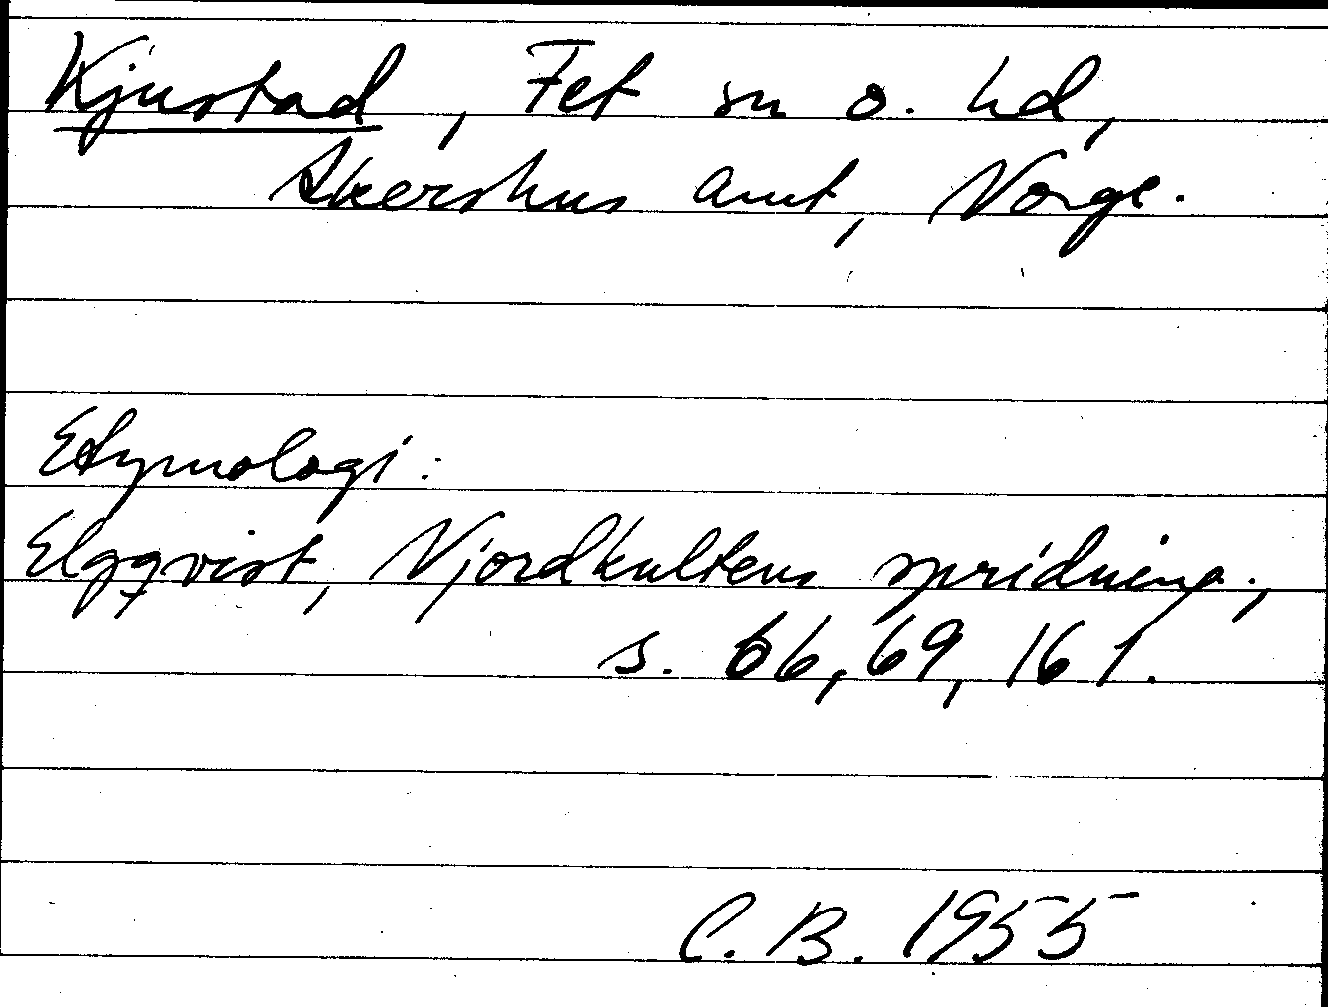 Kjustad, Fet sn o. hd,
Akershus amt, Norge.
Etymologi:
Elgqvist, Njordkultens spridning,
s. 66, 69, 161.
C. B. 1955